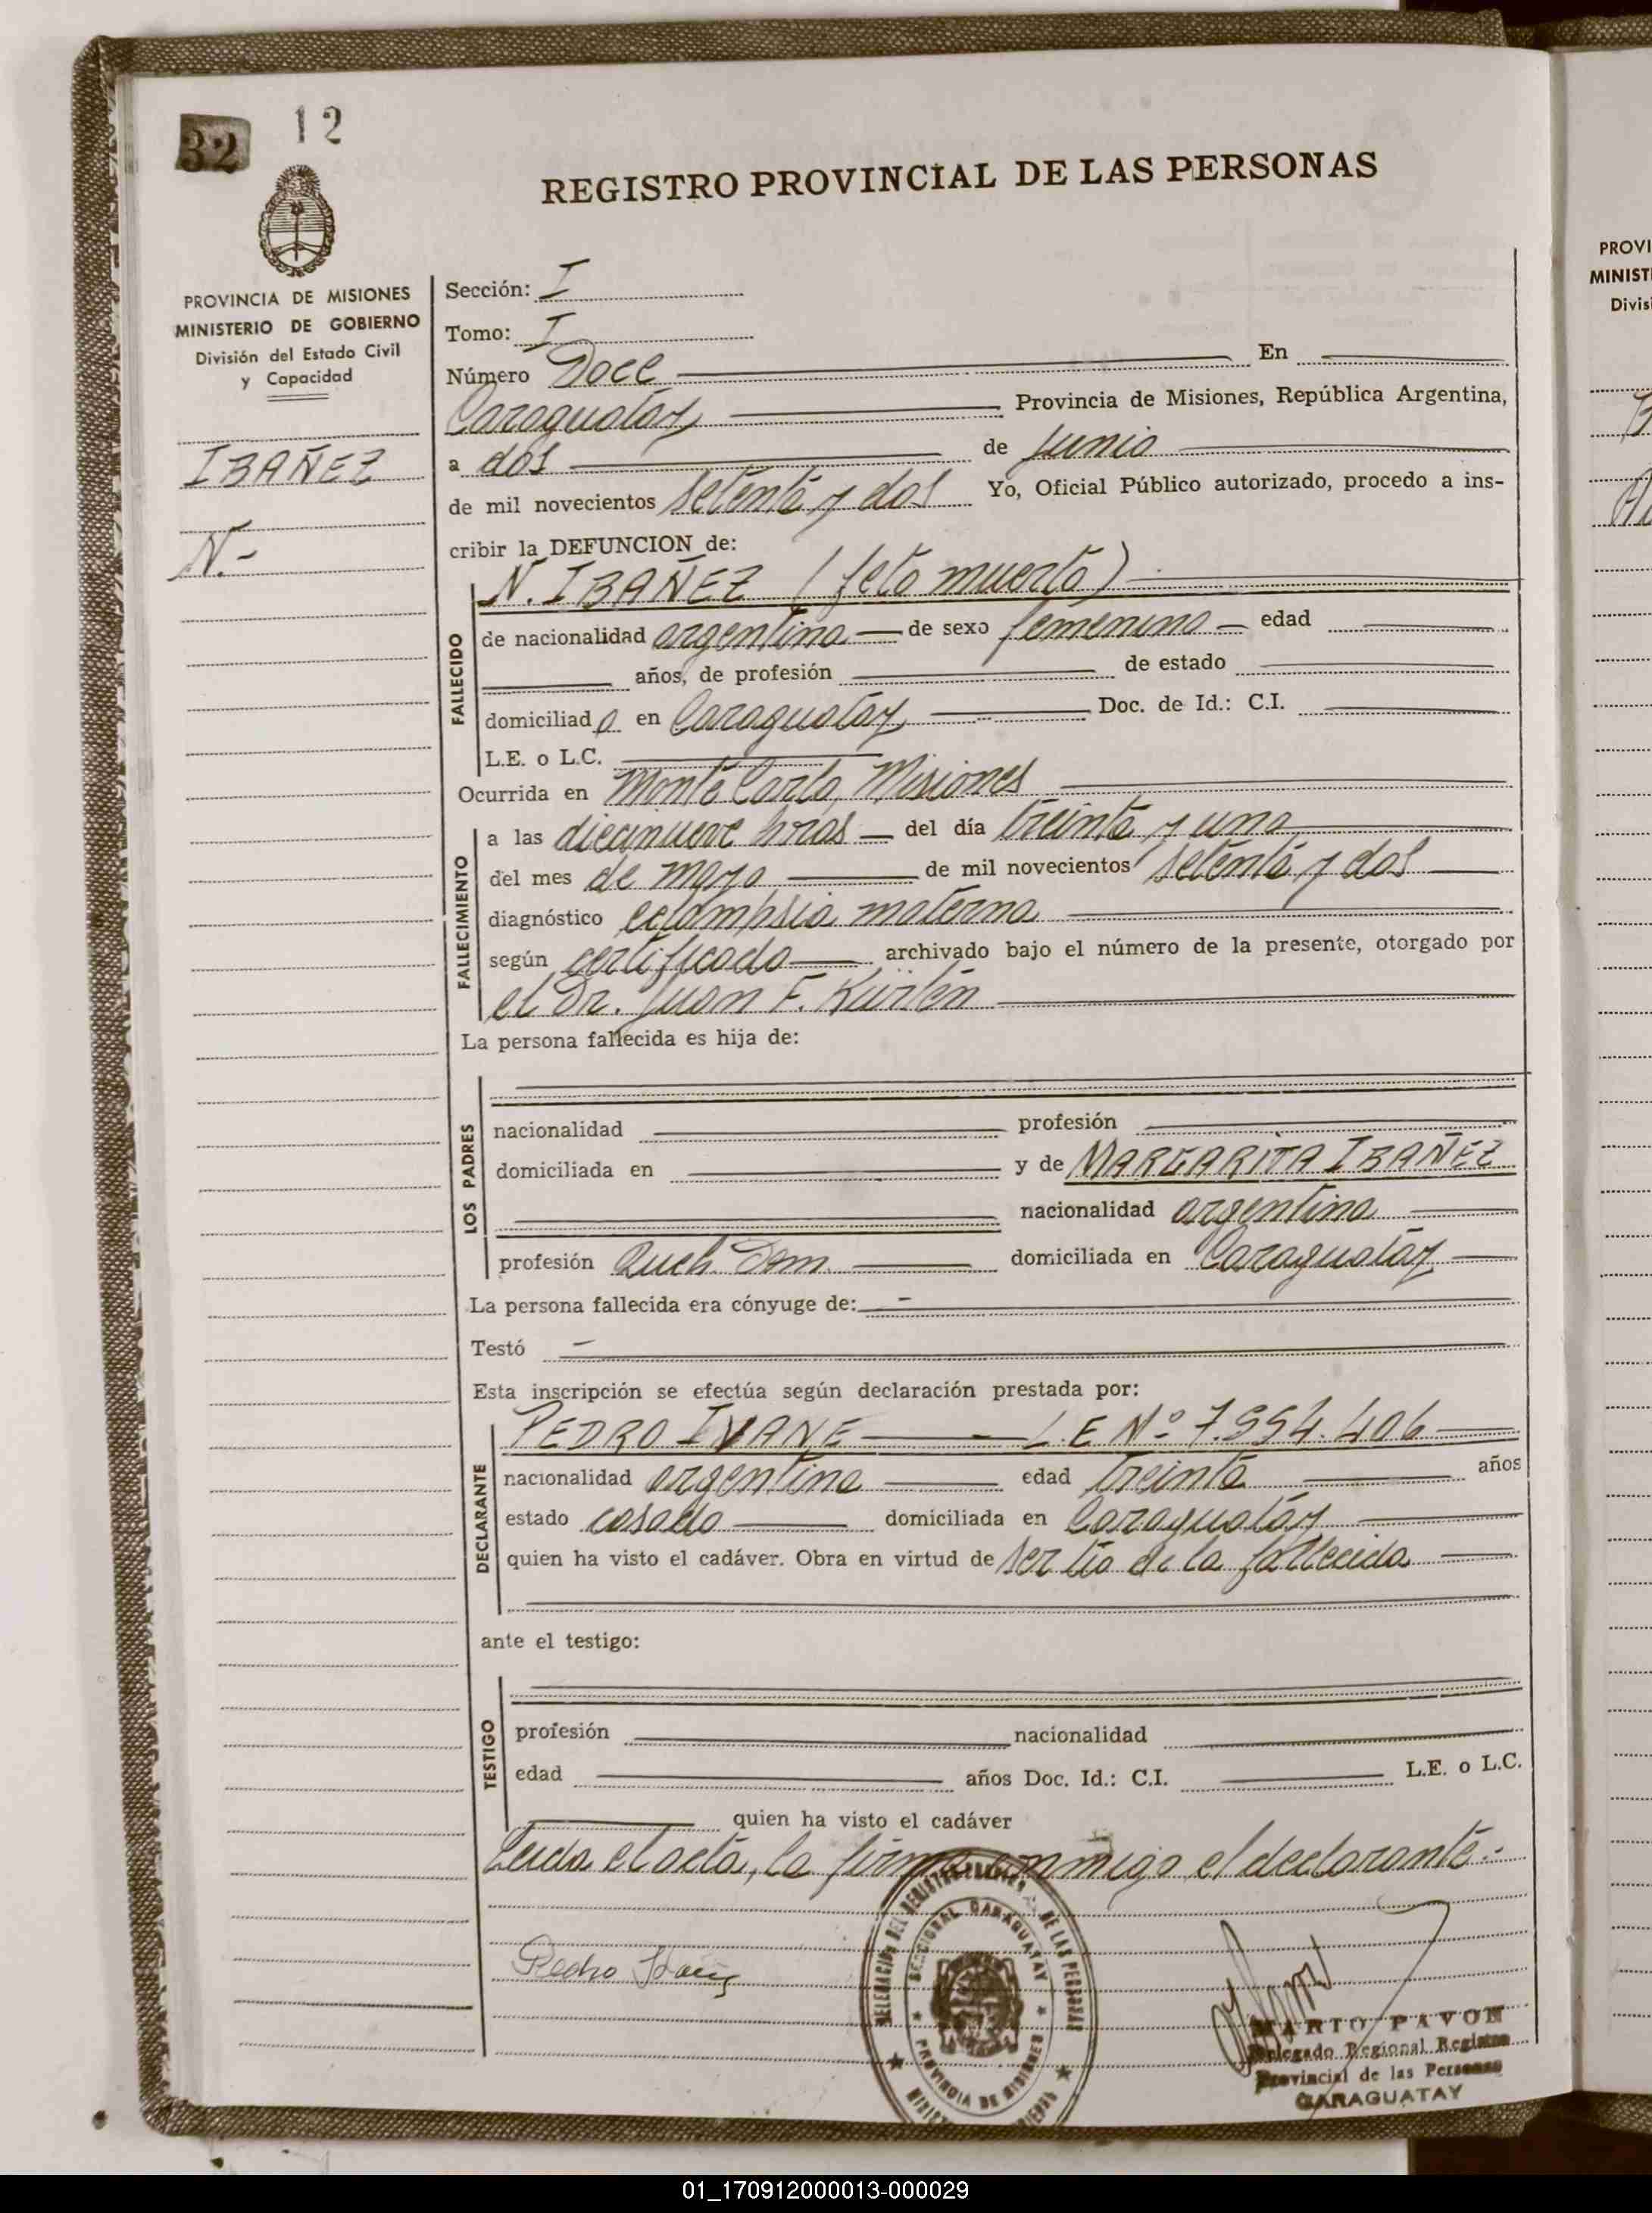 32 12
REGISTRO PROVINCIAL DE LAS PERSONAS
PROVINCIA DE MISIONES
MINISTERIO DE GOBIERNO
División del Estado Civil
y Capacidad
IBAÑEZ
N.-
Sección: I
Tomo: I
Número Doce En
Caraguatay Provincia de Misiones, República Argentina,
a dos de Junio
de mil novecientos setenta y dos Yo, Oficial Público autorizado, procedo a ins-
cribir la DEFUNCION de:
N. IBAÑEZ (feto muerto)
FALLECIDO
de nacionalidad argentina de sexo femenino edad
años, de profesión de estado
domiciliad a en Caraguatay Doc. de Id.: C.I.
L.E. o L.C.
Ocurrida en Monte Carlo, Misiones
FALLECIMIENTO
a las diecinueve hras del día treinta y uno
del mes de mayo de mil novecientos setenta y dos
diagnóstico eclampsia materna
según certificado archivado bajo el número de la presente, otorgado por
el Dr. Juan F.
La persona fallecida es hija de:
LOS PADRES
nacionalidad profesión
domiciliada en y de MARGARITA IBAÑEZ
nacionalidad argentina
profesión Queh. Dom. domiciliada en Caraguatay
La persona fallecida era cónyuge de: -
Testó -
Esta inscripción se efectúa según declaración prestada por:
DECLARANTE
PEDRO L.E Nº 7.554.406
nacionalidad argentina edad treinta años
estado casado domiciliada en Caraguatay
quien ha visto el cadáver. Obra en virtud de ser tío de la fallecida
ante el testigo:
TESTIGO
profesión nacionalidad
edad años Doc. Id.: C.I. L.E. o L.C.
quien ha visto el cadáver
Leida el acta, la firma conmigo el declarante.-
DELEGACION DEL REGISTRO PROVINCIAL DE LAS PERSONAS
SECCIONAL CARAGUATAY
PROVINCIA DE MISIONES
Pedro
PAVON
Delegado Regional Registro
Provincial de las Personas
CARAGUATAY
PROVI
MINIST
Divis
01_170912000013-000029